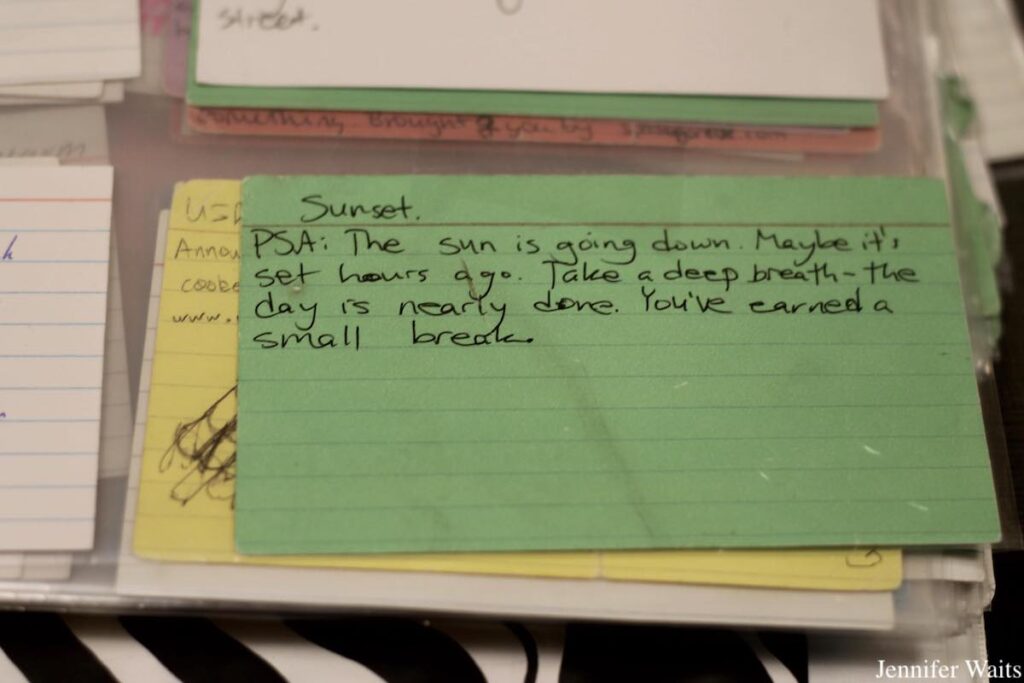 street.
something brought to you by
Sunset.
PSA: The sun is going down. Maybe it's
set hours ago. Take a deep breath - the
day is nearly done. You've earned a
small break.
Annou
cooke
www.
h
Jennifer Waits